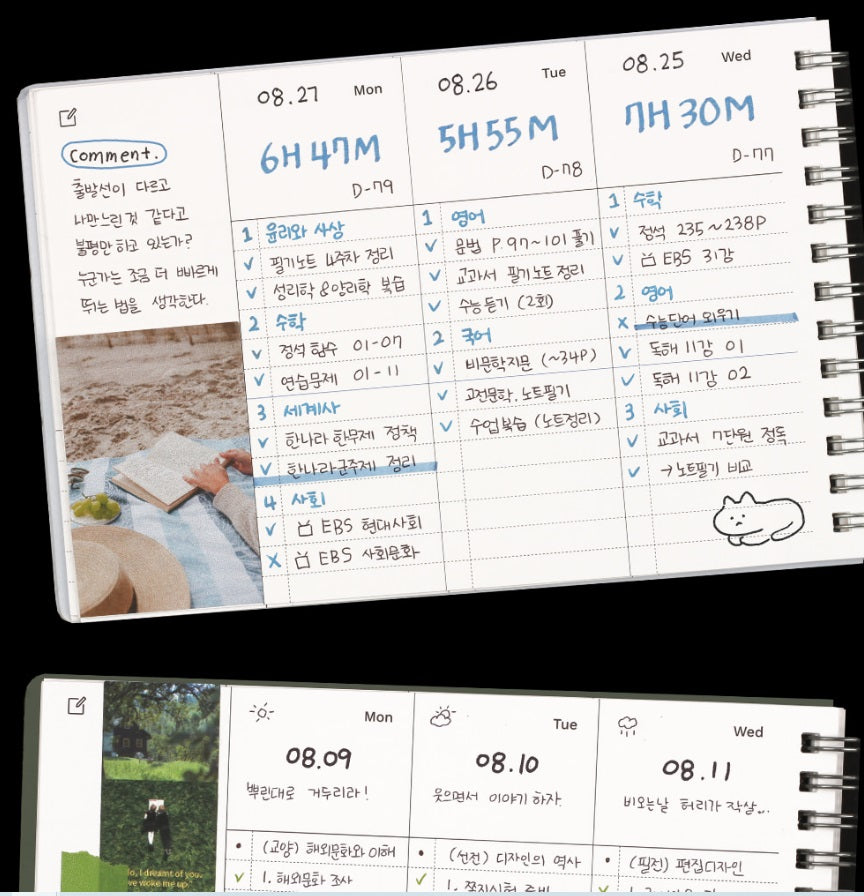 Comment.
출발선이 다르고
나만느린것 같다고
불평만하고 있는가?
누군가는 조금 더 빠르게
뛰는 법을 생각한다.
08.27 Mon
6H 47M
D-79
1 윤리와 사상
✓ 필기노트 4주차 정리
✓ 성리학 & 양리학 복습
2 수학
✓ 정석 함수 01-07
✓ 연습문제 01-11
3 세계사
✓ 한나라 한무제 정책
✓ 한나라 군주제 정리
4 사회
✓ EBS 현대사회
X EBS 사회문화
08.26 Tue
5H 55M
D-78
1 영어
✓ 문법 P.97~101 풀기
✓ 교과서 필기노트 정리
✓ 수능 듣기 (2회)
2 국어
✓ 비문학지문 (~34P)
✓ 고전문학. 노트필기
✓ 수업복습 (노트정리)
08.25 Wed
7H 30M
D-77
1 수학
✓ 정석 235~238P
✓ EBS 31강
2 영어
X 수능단어 외우기
✓ 독해 11강 01
✓ 독해 11강 02
3 사회
✓ 교과서 7단원 정독
✓ → 노트필기 비교
lo, I dreamt of you.
ve woke me up.
Mon
08.09
뿌린대로 거두리라!
• (교양) 해외문화와 이해
✓ 1. 해외문화 조사
Tue
08.10
웃으면서 이야기 하자.
• (선전) 디자인의 역사
✓ 1. 쪽지시험 준비
Wed
08.11
비오는날 허리가 작살...
• (필전) 편집디자인